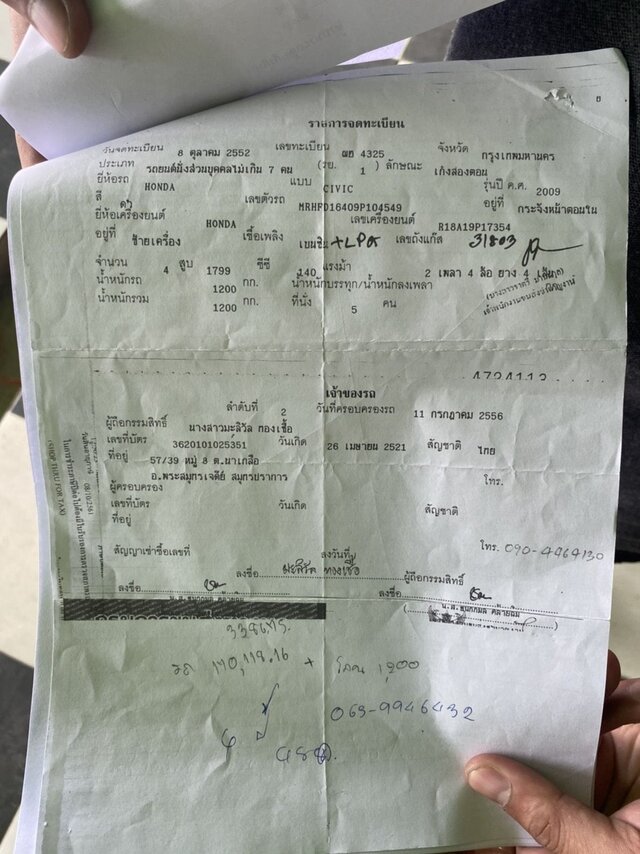 รายการจดทะเบียน
วันจดทะเบียน 8 ตุลาคม 2552 เลขทะเบียน 4325 จังหวัด กรุงเทพมหานคร
ประเภท รถยนต์นั่งส่วนบุคคลไม่เกิน 7 คน (รย. 1 ) ลักษณะ เก๋งสองตอน
ยี่ห้อรถ HONDA แบบ CIVIC รุ่นปี ค.ศ. 2009
สี ดำ เลขตัวรถ MRHFD16409P104549 อยู่ที่ กระจังหน้าตอนใน
ยี่ห้อเครื่องยนต์ HONDA เลขเครื่องยนต์ R18A19P17354
อยู่ที่ ซ้ายเครื่อง เชื้อเพลิง เบนซิน +LPG เลขถังแก๊ส 31803
จำนวน 4 สูบ 1799 ซีซี 140 แรงม้า 2 เพลา 4 ล้อ ยาง 4 เส้น
น้ำหนักรถ 1200 กก. น้ำหนักบรรทุก/น้ำหนักลงเพลา
น้ำหนักรวม 1200 กก. ที่นั่ง 5 คน
4724113
เจ้าของรถ
ลำดับที่ 2 วันที่ครอบครองรถ 11 กรกฎาคม 2556
ผู้ถือกรรมสิทธิ์ นางสาวมะลิวัล ทองเชื้อ
เลขที่บัตร 3620101025351 วันเกิด 26 เมษายน 2521 สัญชาติ ไทย
ที่อยู่ 57/39 หมู่ 8 ต.นาเกลือ โทร.
อ.พระสมุทรเจดีย์ สมุทรปราการ
ผู้ครอบครอง
เลขที่บัตร วันเกิด สัญชาติ
ที่อยู่
โทร. 090-4964130
สัญญาเช่าซื้อเลขที่ ลงวันที่
ลงชื่อ มะลิวัล ทองเชื้อ ผู้ถือกรรมสิทธิ์
ลงชื่อ ลงชื่อ
รถ 170,118.16 + โอน 1,200
063-9946432